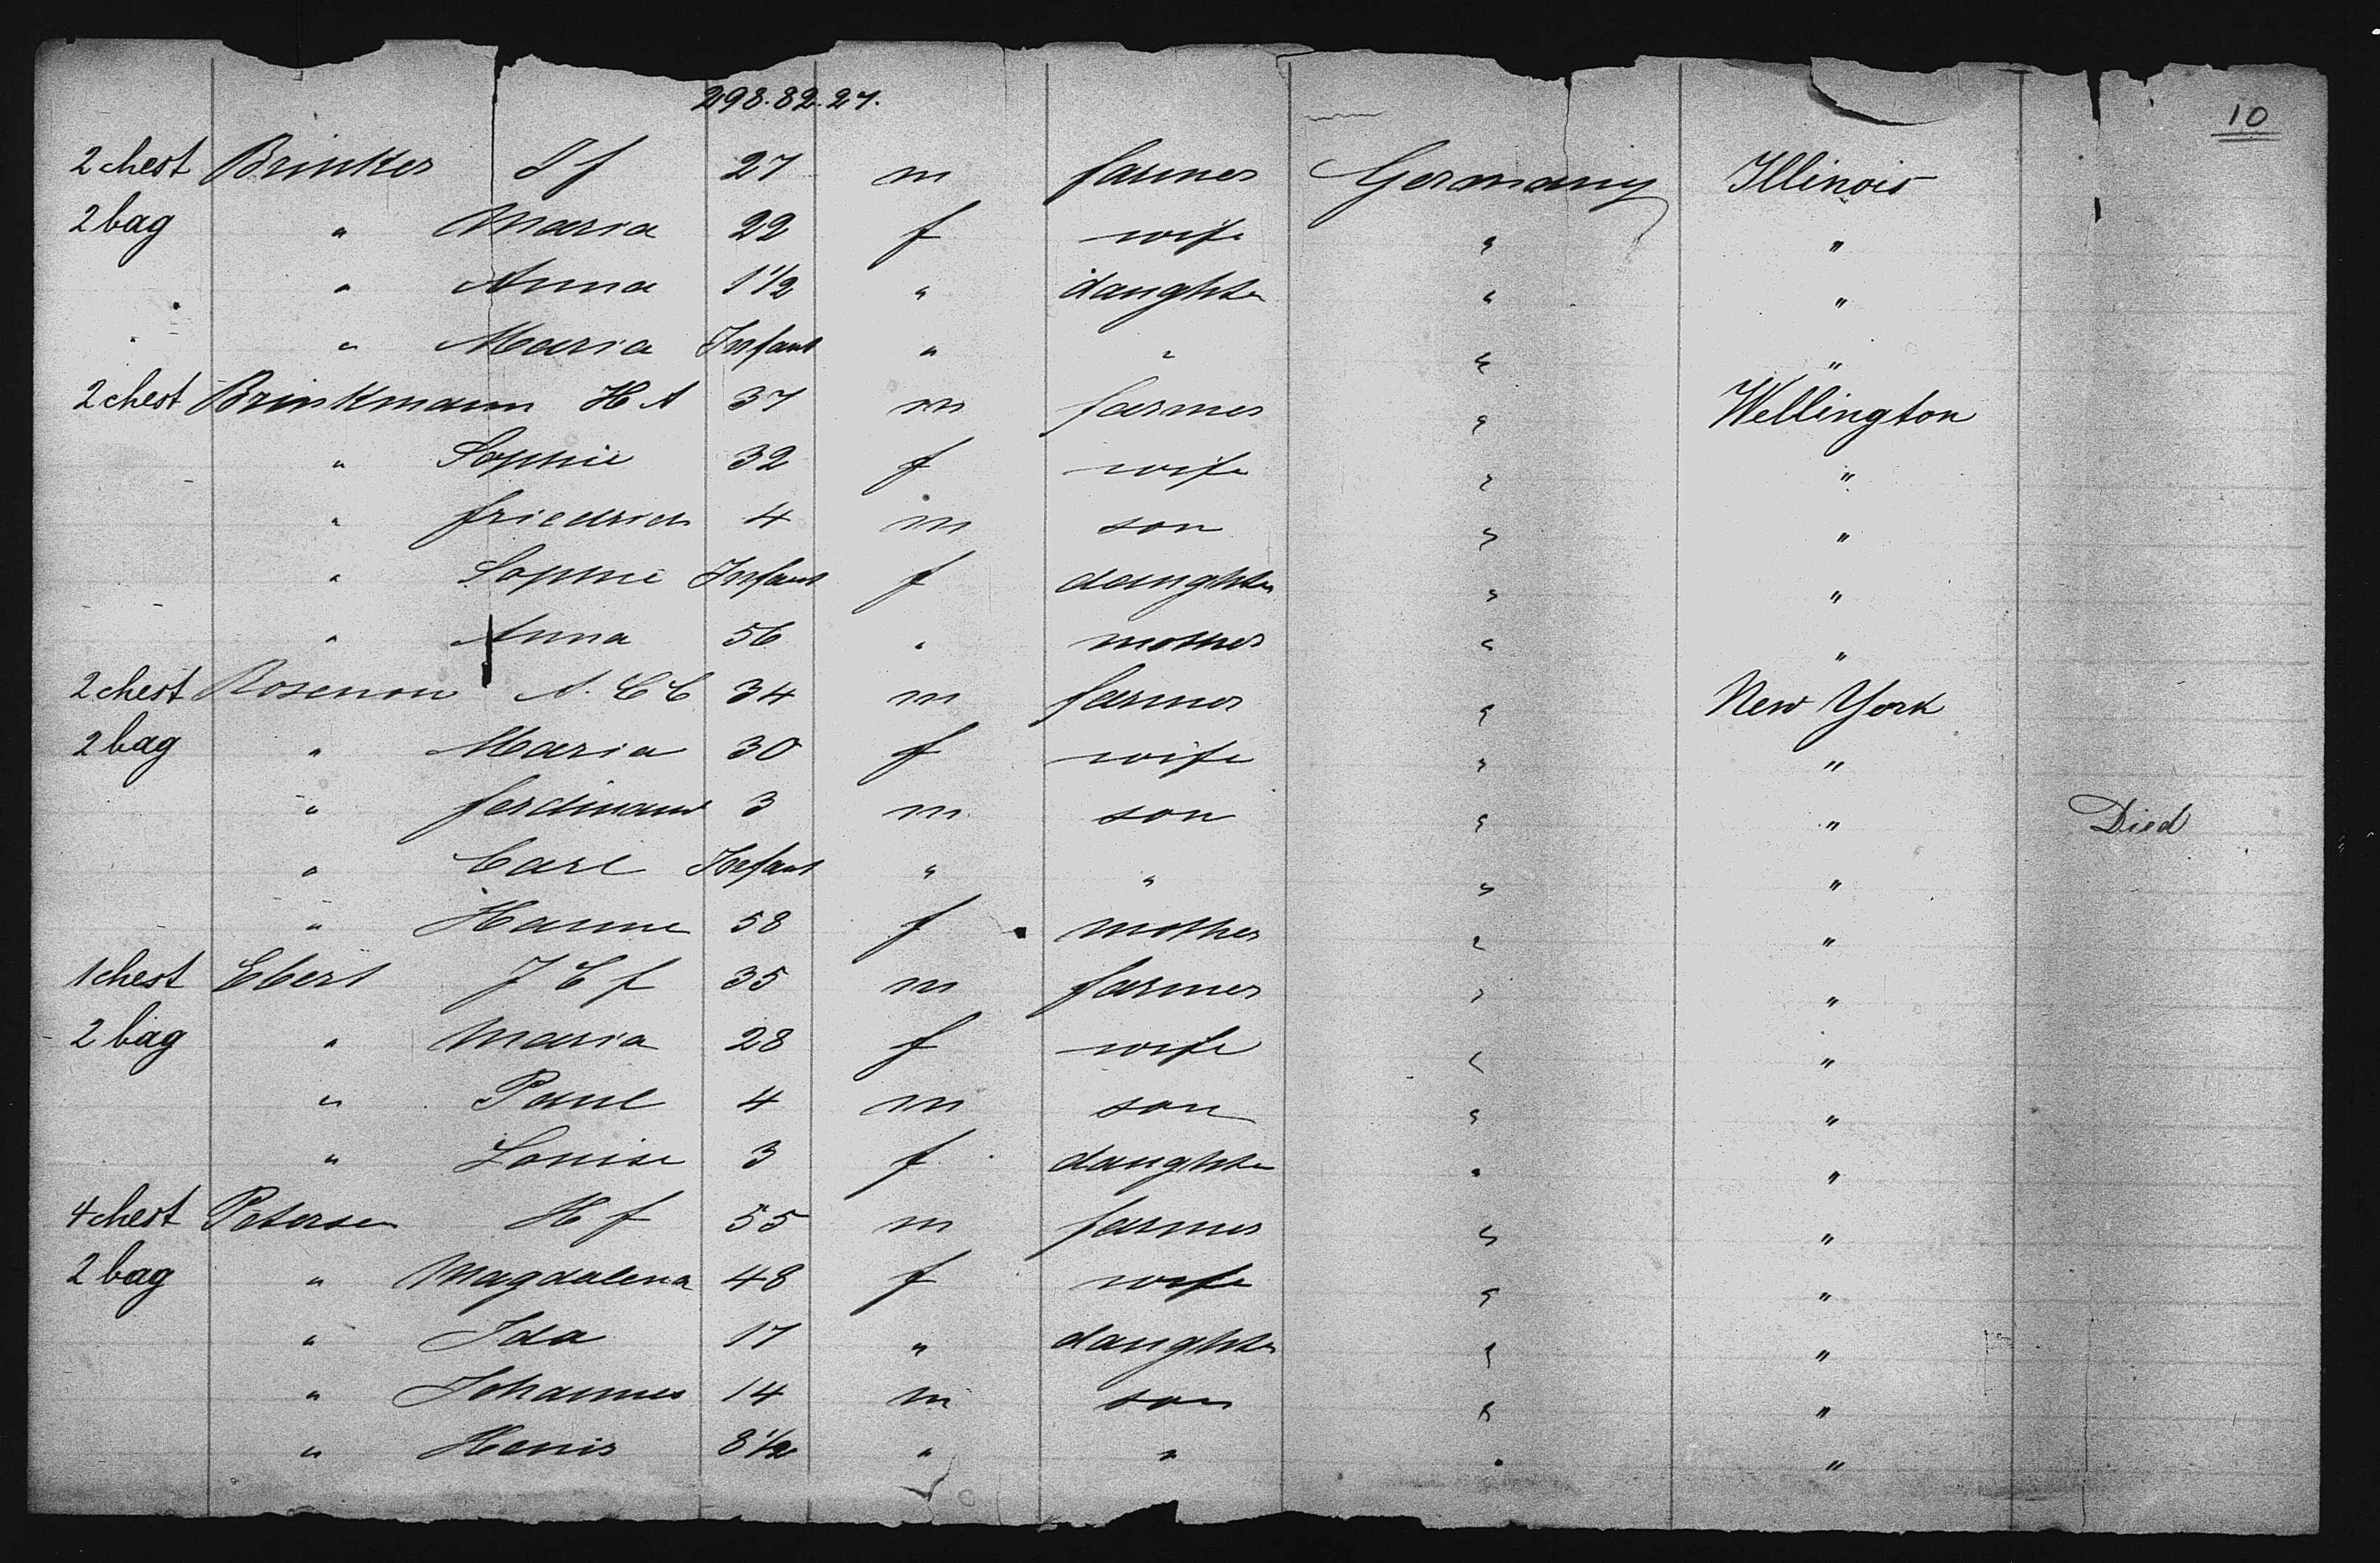 298.82.27.
10
2 chest Brinker J f 27 m farmer Germany Illinois
2 bag " Maria 22 f wife " "
" Anna 1 1/2 " daughter " "
" Maria Infant " " " "
2 chest Brinkmann H A 37 m farmer " Wellington
" Sophie 32 f wife " "
" friedrich 4 m son " "
" Sophie Infant f daughter " "
" Anna 56 " mother " "
2 chest Rosenow A. C C 34 m farmer " New York
2 bag " Maria 30 f wife " "
" ferdinand 3 m son " " Died
" Carl Infant " " " "
" Hanne 58 f mother " "
1 chest Ebert J C f 35 m farmer " "
2 bag " Maria 28 f wife " "
" Paul 4 m son " "
" Louise 3 f daughter " "
4 chest Petersen H f 55 m farmer " "
2 bag " Magdalena 48 f wife " "
" Ida 17 " daughter " "
" Johannes 14 m son " "
" 8 1/2 " " " "